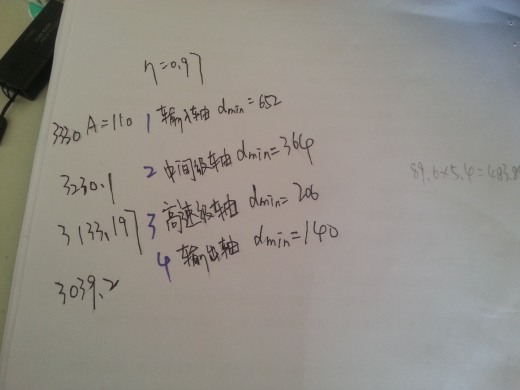 η=0.97
3330 A=110 1 输入轴 dmin=652
3230.1 2 中间级轴 dmin=364
3133.197 3 高速级轴 dmin=206
3039.2 4 输出轴 dmin=140
89.6×5.4=483.8